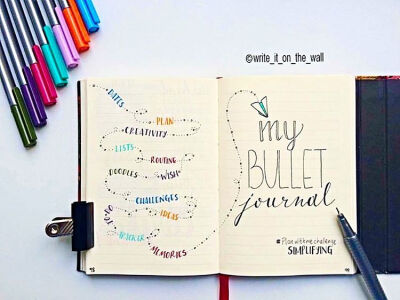 ©write_it_on_the_wall
DATES
PLAN
CREATIVITY
LISTS
ROUTINE
DOODLES
WISH
CHALLENGES
TO-DO
IDEAS
TRACKER
MEMORIES
my
BULLET
journal
#Planwithmechallenge
SIMPLIFYING